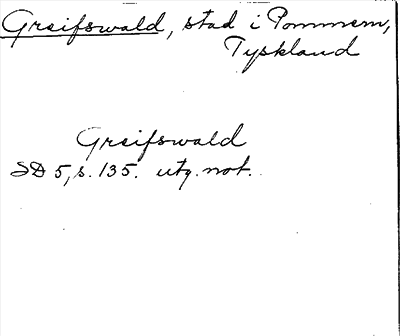 Greifswald, stad i Pommern,
Tyskland
Greifswald
SD 5, s. 135. utg. not.